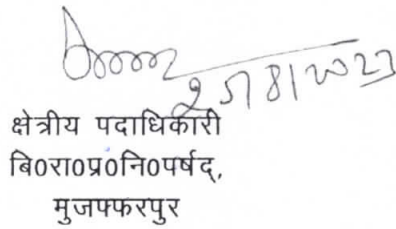 25/8/2023
क्षेत्रीय पदाधिकारी
बि0रा0प्र0नि0पर्षद्,
मुजफ्फरपुर